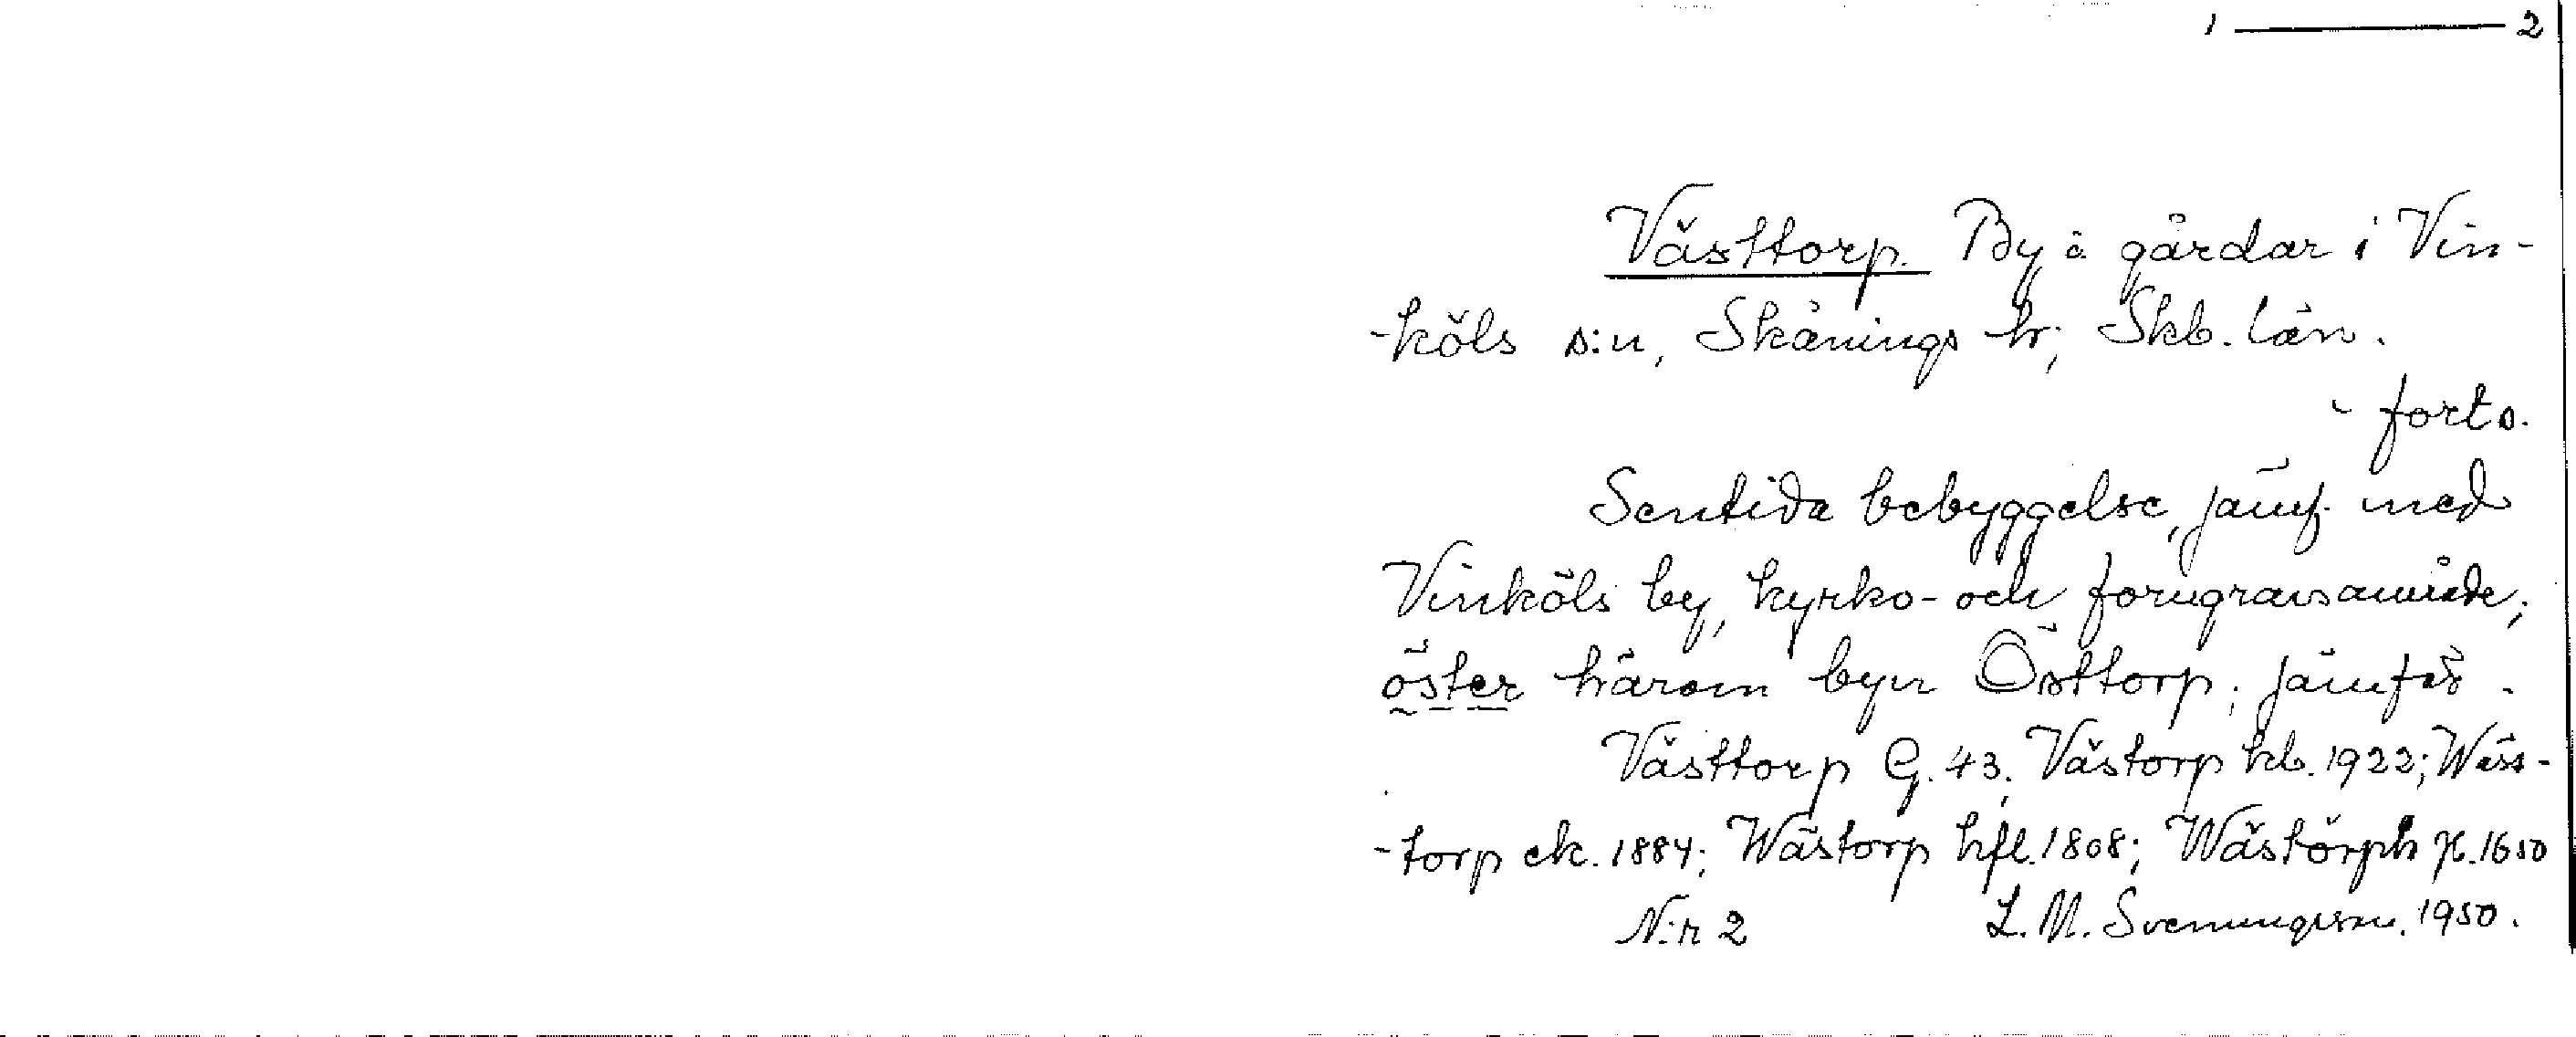 1 ——— 2
Västtorp. By å gårdar i Vin-
-köls s:n, Skånings hr; Skb. län.
- forts.
Sentida bebyggelse, jämf. med
Vinköls by, kyrko- och forngravsområde;
öster härom byn Östtorp; jämför.
Västtorp G. 43; Västorp kb. 1922; Wäs-
-torp ek. 1884; Wästorp hfl. 1808; Wästörph 1650
N:r 2 L. M. Svenungsson. 1950.